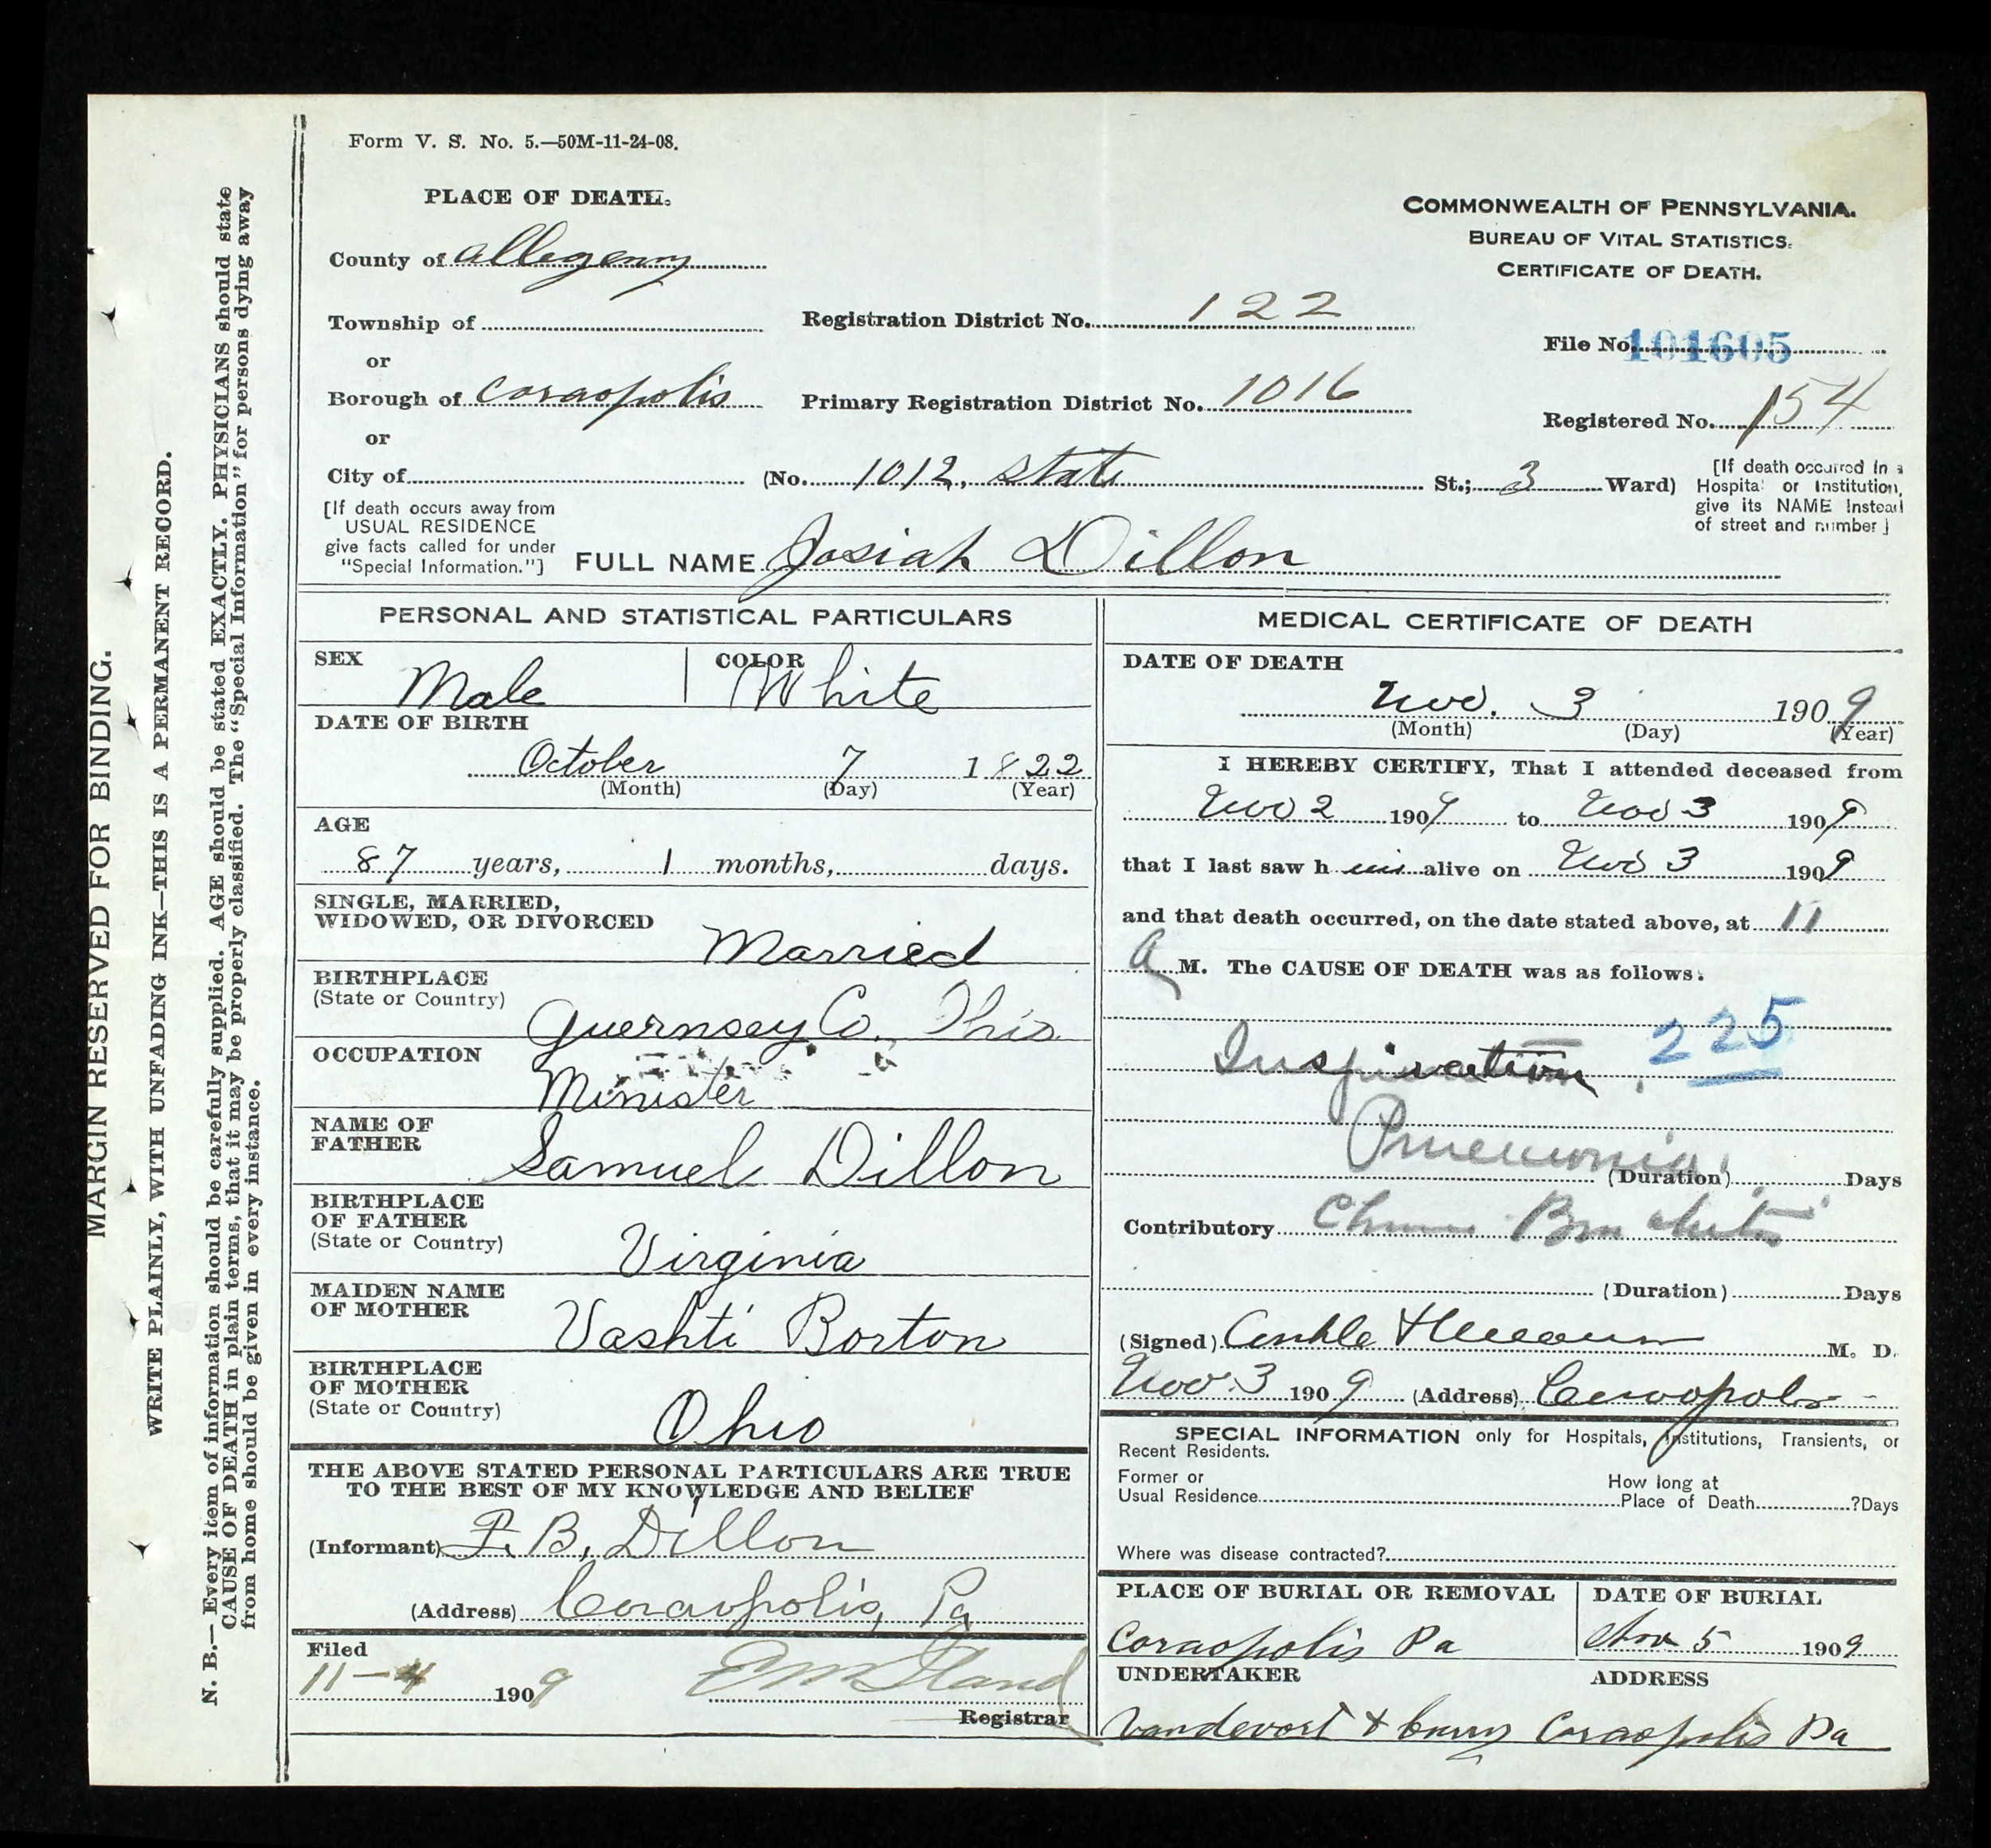 Form V. S. No. 5.—50M-11-24-08.
PLACE OF DEATH.
COMMONWEALTH OF PENNSYLVANIA.
BUREAU OF VITAL STATISTICS.
CERTIFICATE OF DEATH.
County of Allegeny
Township of
Registration District No. 122
File No. 101605
or
Borough of Coraopolis
Primary Registration District No. 1016
Registered No. 154
or
City of (No. 1012, State St.; 3 Ward)
[If death occurred in a
Hospital or Institution,
give its NAME instead
of street and number]
[If death occurs away from
USUAL RESIDENCE
give facts called for under
"Special Information."]
FULL NAME Josiah Dillon
PERSONAL AND STATISTICAL PARTICULARS
SEX Male
COLOR White
DATE OF BIRTH
October 7 1822
(Month) (Day) (Year)
AGE
87 years, 1 months, days.
SINGLE, MARRIED,
WIDOWED, OR DIVORCED
Married
BIRTHPLACE
(State or Country)
Guernsey Co. Ohio
OCCUPATION
Minister
NAME OF
FATHER
Samuel Dillon
BIRTHPLACE
OF FATHER
(State or Country)
Virginia
MAIDEN NAME
OF MOTHER
Vashti Borton
BIRTHPLACE
OF MOTHER
(State or Country)
Ohio
THE ABOVE STATED PERSONAL PARTICULARS ARE TRUE
TO THE BEST OF MY KNOWLEDGE AND BELIEF
(Informant) B. Dillon
(Address) Coraopolis, Pa
Filed
11-4 1909
Registrar
MEDICAL CERTIFICATE OF DEATH
DATE OF DEATH
Nov. 3 1909
(Month) (Day) (Year)
I HEREBY CERTIFY, That I attended deceased from
Nov 2 1909 to Nov 3 1909
that I last saw him alive on Nov 3 1909
and that death occurred, on the date stated above, at 11
A M. The CAUSE OF DEATH was as follows:
225
Inspiration
Pneumonia
(Duration) Days
Contributory Bronchitis
(Duration) Days
(Signed) M. D.
Nov. 3 1909 (Address) Coraopolis
SPECIAL INFORMATION only for Hospitals, Institutions, Transients, or
Recent Residents.
Former or
Usual Residence
How long at
Place of Death ?Days
Where was disease contracted?
PLACE OF BURIAL OR REMOVAL
Coraopolis Pa
DATE OF BURIAL
Nov 5 1909
UNDERTAKER
ADDRESS
Vandevort & Curry Coraopolis Pa
MARGIN RESERVED FOR BINDING.
WRITE PLAINLY, WITH UNFADING INK—THIS IS A PERMANENT RECORD.
N. B.—Every item of information should be carefully supplied. AGE should be stated EXACTLY. PHYSICIANS should state
CAUSE OF DEATH in plain terms, that it may be properly classified. The "Special Information" for persons dying away
from home should be given in every instance.